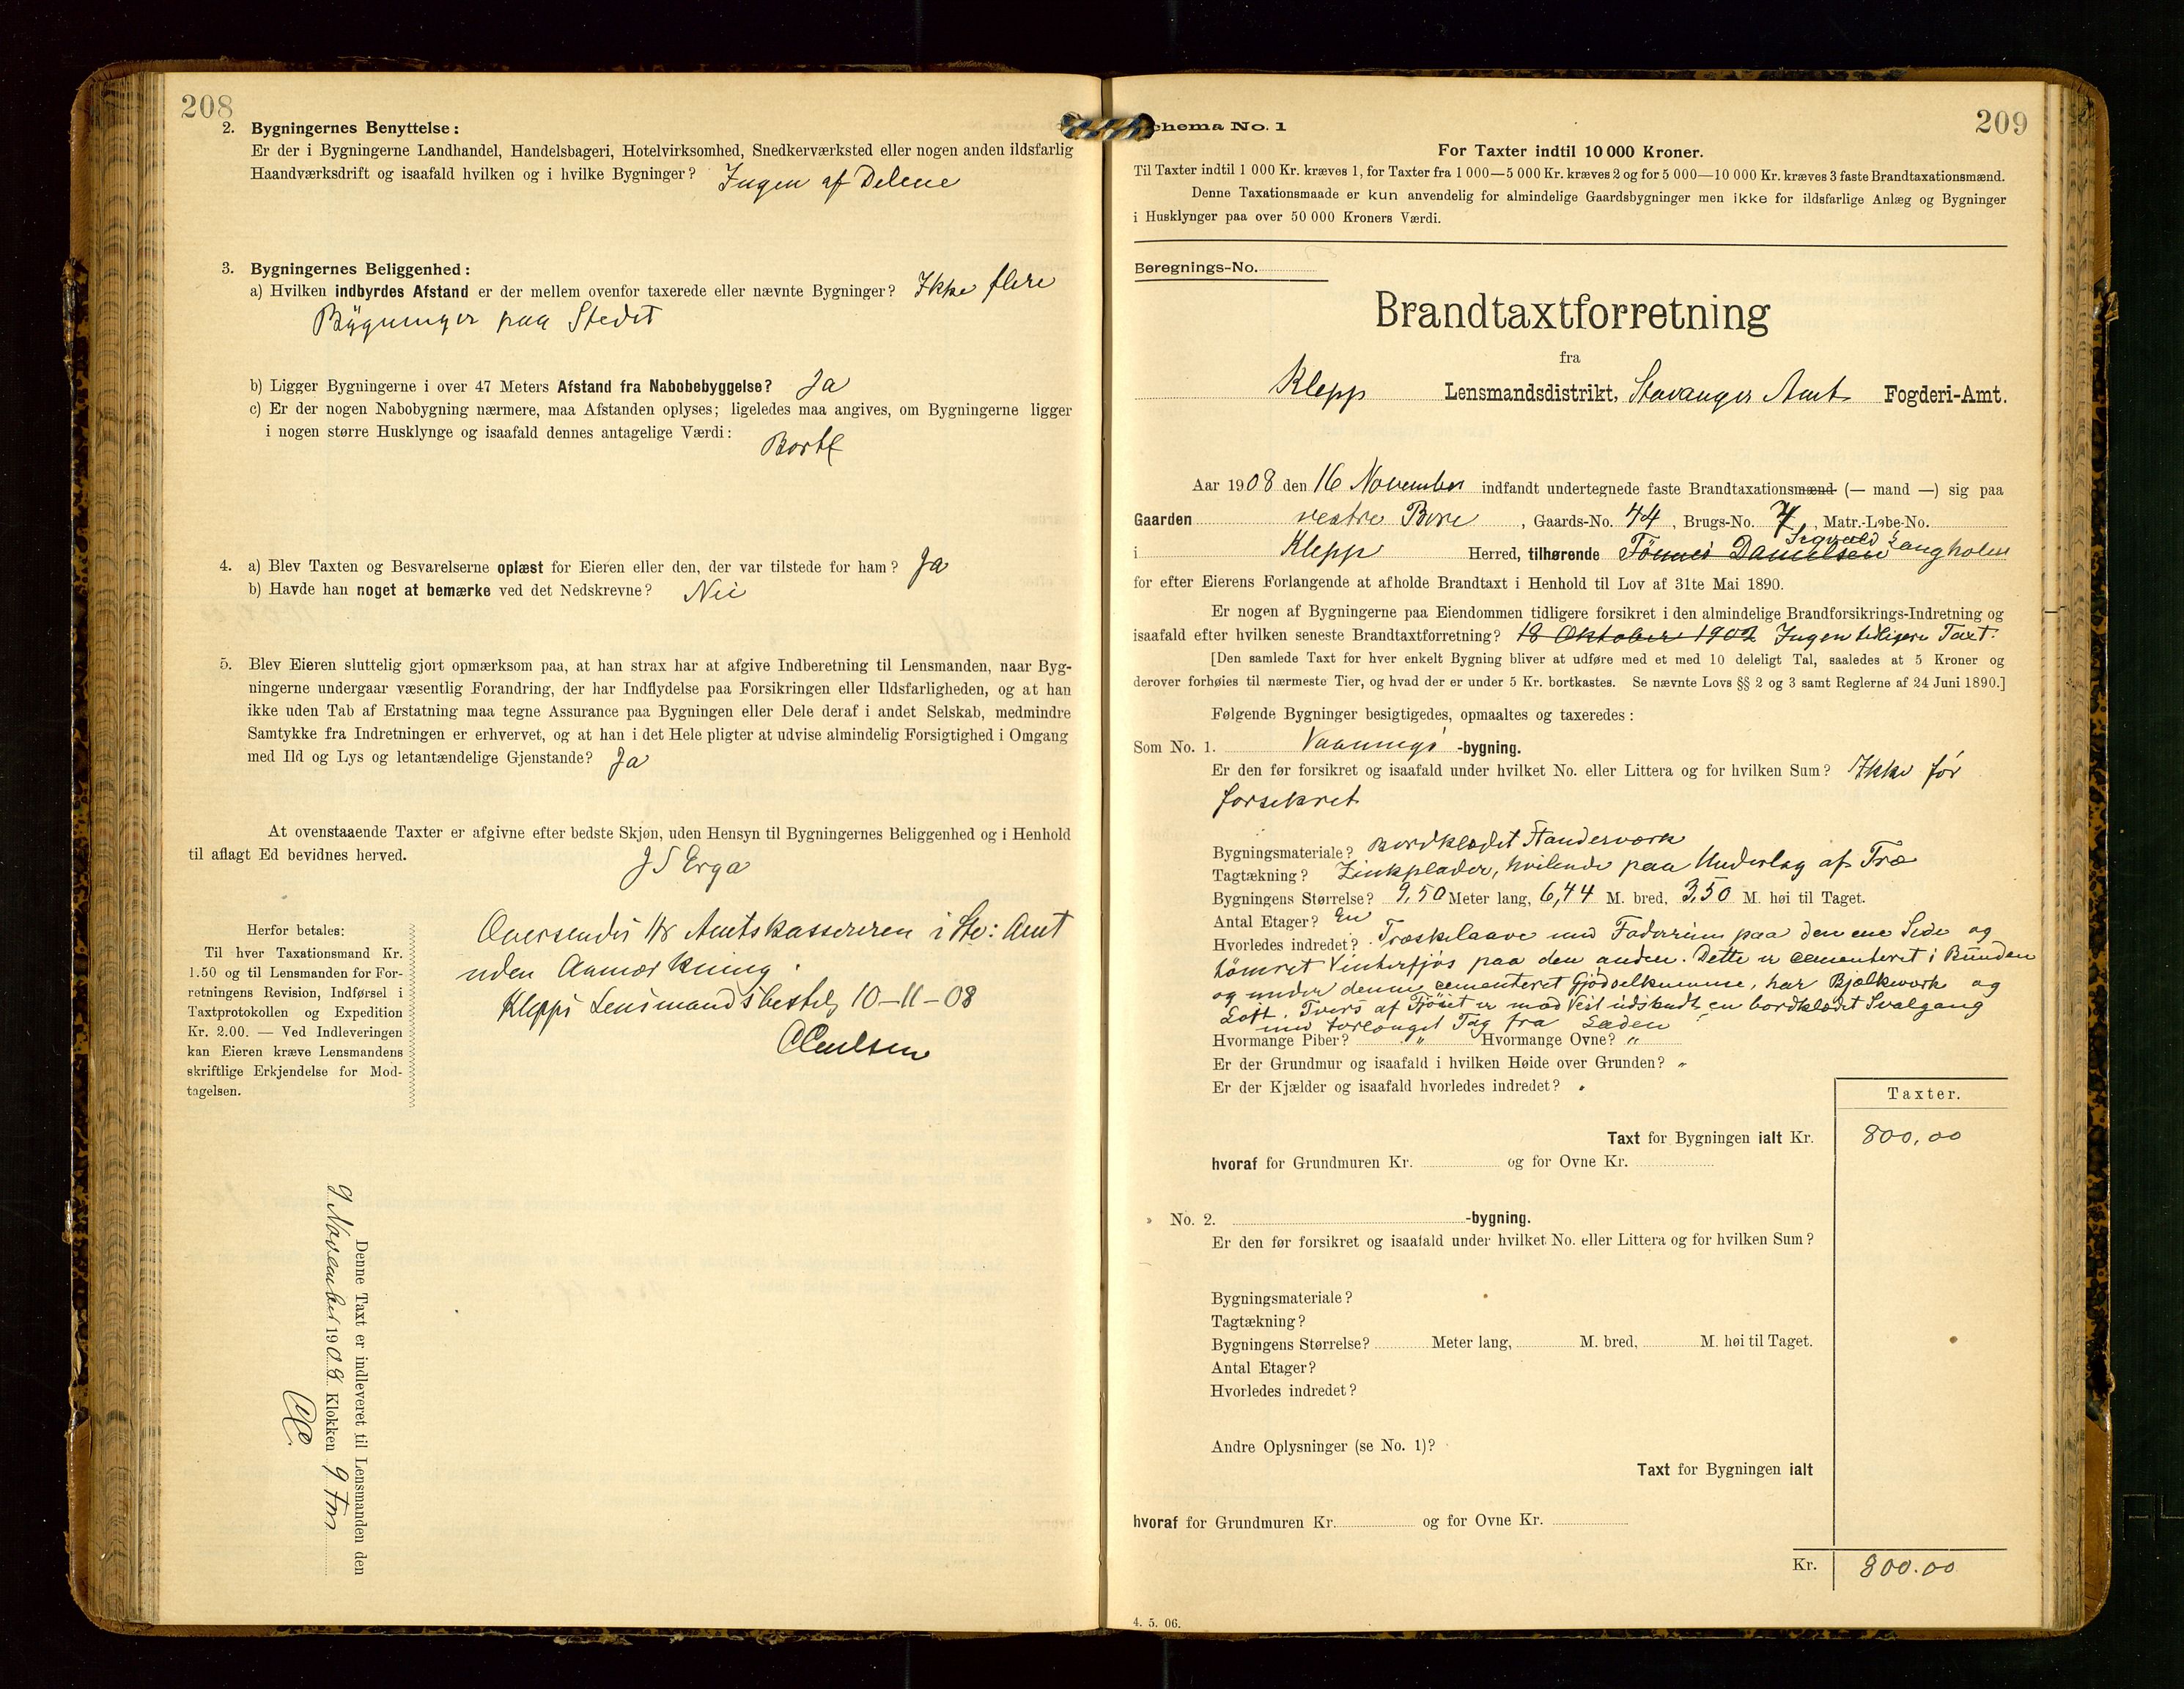 208
2. Bygningernes Benyttelse:
Er der i Bygningerne Landhandel, Handelsbageri, Hotelvirksomhed, Snedkerværksted eller nogen anden ildsfarlig
Haandværksdrift og isaafald hvilken og i hvilke Bygninger? Ingen af Delene
3. Bygningernes Beliggenhed:
a) Hvilken indbyrdes Afstand er der mellem ovenfor taxerede eller nævnte Bygninger? Ikke flere
Bygninger paa Stedet
b) Ligger Bygningerne i over 47 Meters Afstand fra Nabobebyggelse? Ja
c) Er der nogen Nabobygning nærmere, maa Afstanden oplyses; ligeledes maa angives, om Bygningerne ligger
i nogen større Husklynge og isaafald dennes antagelige Værdi:
4. a) Blev Taxten og Besvarelserne oplæst for Eieren eller den, der var tilstede for ham? Ja
b) Havde han noget at bemærke ved det Nedskrevne? Nei
5. Blev Eieren sluttelig gjort opmærksom paa, at han strax har at afgive Indberetning til Lensmanden, naar Byg-
ningerne undergaar væsentlig Forandring, der har Indflydelse paa Forsikringen eller Ildsfarligheden, og at han
ikke uden Tab af Erstatning maa tegne Assurance paa Bygningen eller Dele deraf i andet Selskab, medmindre
Samtykke fra Indretningen er erhvervet, og at han i det Hele pligter at udvise almindelig Forsigtighed i Omgang
med Ild og Lys og letantændelige Gjenstande? Ja
At ovenstaaende Taxter er afgivne efter bedste Skjøn, uden Hensyn til Bygningernes Beliggenhed og i Henhold
til aflagt Ed bevidnes herved.
J S Erga
Herfor betales:
Til hver Taxationsmand Kr.
1.50 og til Lensmanden for For-
retningens Revision, Indførsel i
Taxtprotokollen og Expedition
Kr. 2.00. — Ved Indleveringen
kan Eieren kræve Lensmandens
skriftlige Erkjendelse for Mod-
tagelsen.
Oversendes Hr Amtskassereren i Stv: Amt
uden Anmærkning.
Klepps Lensmandsbestilg 10-11-08
Denne Taxt er indleveret til Lensmanden den
9 November 1908 Klokken 9 Fm
209
Schema No. 1
For Taxter indtil 10 000 Kroner.
Til Taxter indtil 1 000 Kr. kræves 1, for Taxter fra 1 000—5 000 Kr. kræves 2 og for 5 000—10 000 Kr. kræves 3 faste Brandtaxationsmænd.
Denne Taxationsmaade er kun anvendelig for almindelige Gaardsbygninger men ikke for ildsfarlige Anlæg og Bygninger
i Husklynger paa over 50 000 Kroners Værdi.
Beregnings-No.
Brandtaxtforretning
fra
Klepp Lensmandsdistrikt, Stavanger Amt Fogderi-Amt.
Aar 1908 den 16 November indfandt undertegnede faste Brandtaxationsmænd (— mand —) sig paa
Gaarden vestre Bore, Gaards-No. 44, Brugs-No. 7, Matr.-Løbe-No.
i Klepp Herred, tilhørende Tønnes Danielsen Sigvald Langholm
for efter Eierens Forlangende at afholde Brandtaxt i Henhold til Lov af 31te Mai 1890.
Er nogen af Bygningerne paa Eiendommen tidligere forsikret i den almindelige Brandforsikrings-Indretning og
isaafald efter hvilken seneste Brandtaxtforretning? 18 Oktober 1902 Ingen tidligere Taxt.
[Den samlede Taxt for hver enkelt Bygning bliver at udføre med et med 10 deleligt Tal, saaledes at 5 Kroner og
derover forhøies til nærmeste Tier, og hvad der er under 5 Kr. bortkastes. Se nævnte Lovs §§ 2 og 3 samt Reglerne af 24 Juni 1890.]
Følgende Bygninger besigtigedes, opmaaltes og taxeredes:
Som No. 1. Vaanings -bygning.
Er den før forsikret og isaafald under hvilket No. eller Littera og for hvilken Sum? Ikke før
forsikret
Bygningsmateriale? Bordklædt Standerværk
Tagtækning? Zinkplader, hvilende paa Underlag af Træ
Bygningens Størrelse? 9,50 Meter lang, 6,44 M. bred, 3,50 M. høi til Taget.
Antal Etager? En
Hvorledes indredet? Træskelaave med Foderrum paa den ene Side og
tømret Vinterfjøs paa den anden. Dette er cementeret i Bunden
og under denne cementeret Gjødselkumme, har Bjælkværk og
Loft. Tvers af Fjøset er mod Vest udskudt en bordklædt Svalgang
med forlænget Tag fra Laden
Hvormange Piber? " Hvormange Ovne? "
Er der Grundmur og isaafald i hvilken Høide over Grunden? "
Er der Kjælder og isaafald hvorledes indredet? "
Taxter.
Taxt for Bygningen ialt Kr. 800,00
hvoraf for Grundmuren Kr. og for Ovne Kr.
» No. 2. -bygning.
Er den før forsikret og isaafald under hvilket No. eller Littera og for hvilken Sum?
Bygningsmateriale?
Tagtækning?
Bygningens Størrelse? Meter lang, M. bred, M. høi til Taget.
Antal Etager?
Hvorledes indredet?
Andre Oplysninger (se No. 1)?
Taxt for Bygningen ialt
hvoraf for Grundmuren Kr. og for Ovne Kr.
Kr. 800.00
4. 5. 06.